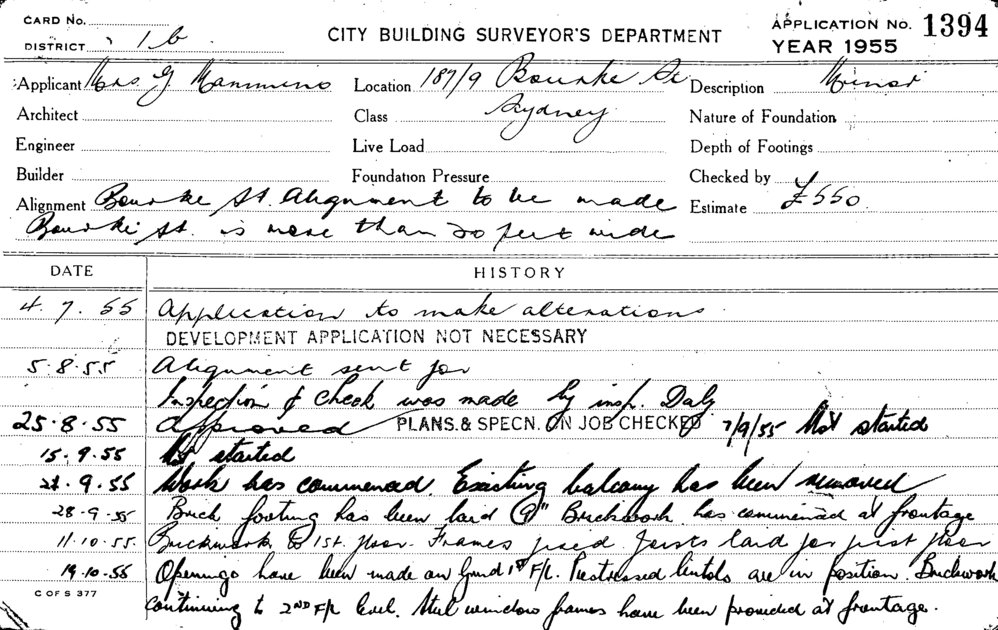 CARD No.
DISTRICT 1b
CITY BUILDING SURVEYOR'S DEPARTMENT
APPLICATION No. 1394
YEAR 1955
Applicant Mrs. G. Mammino Location 187/9 Bourke St Description Minor
Architect Class Sydney Nature of Foundation
Engineer Live Load Depth of Footings
Builder Foundation Pressure Checked by
Alignment Bourke St. Alignment to be made Estimate £550
Bourke St. is more than 20 feet wide
DATE HISTORY
4.7.55 Application to make alterations
DEVELOPMENT APPLICATION NOT NECESSARY
5.8.55 Alignment sent for
Inspection & Check was made by insp. Daly
25.8.55 Approved PLANS. & SPECN. ON JOB CHECKED 7/9/55 Not started
15.9.55 Not started
21.9.55 Work has commenced. Existing balcony has been removed
28.9.55 Brick footing has been laid 9" Brickwork has commenced at frontage
11.10.55. Brickwork to 1st. floor. Frames Joists laid for first floor
19.10.55 Openings have been made on Grnd 1st F/L. Prestressed lintols are in position. Brickwork
C OF S 377
continuing to 2ND F/L level. Steel window frames have been provided at frontage.